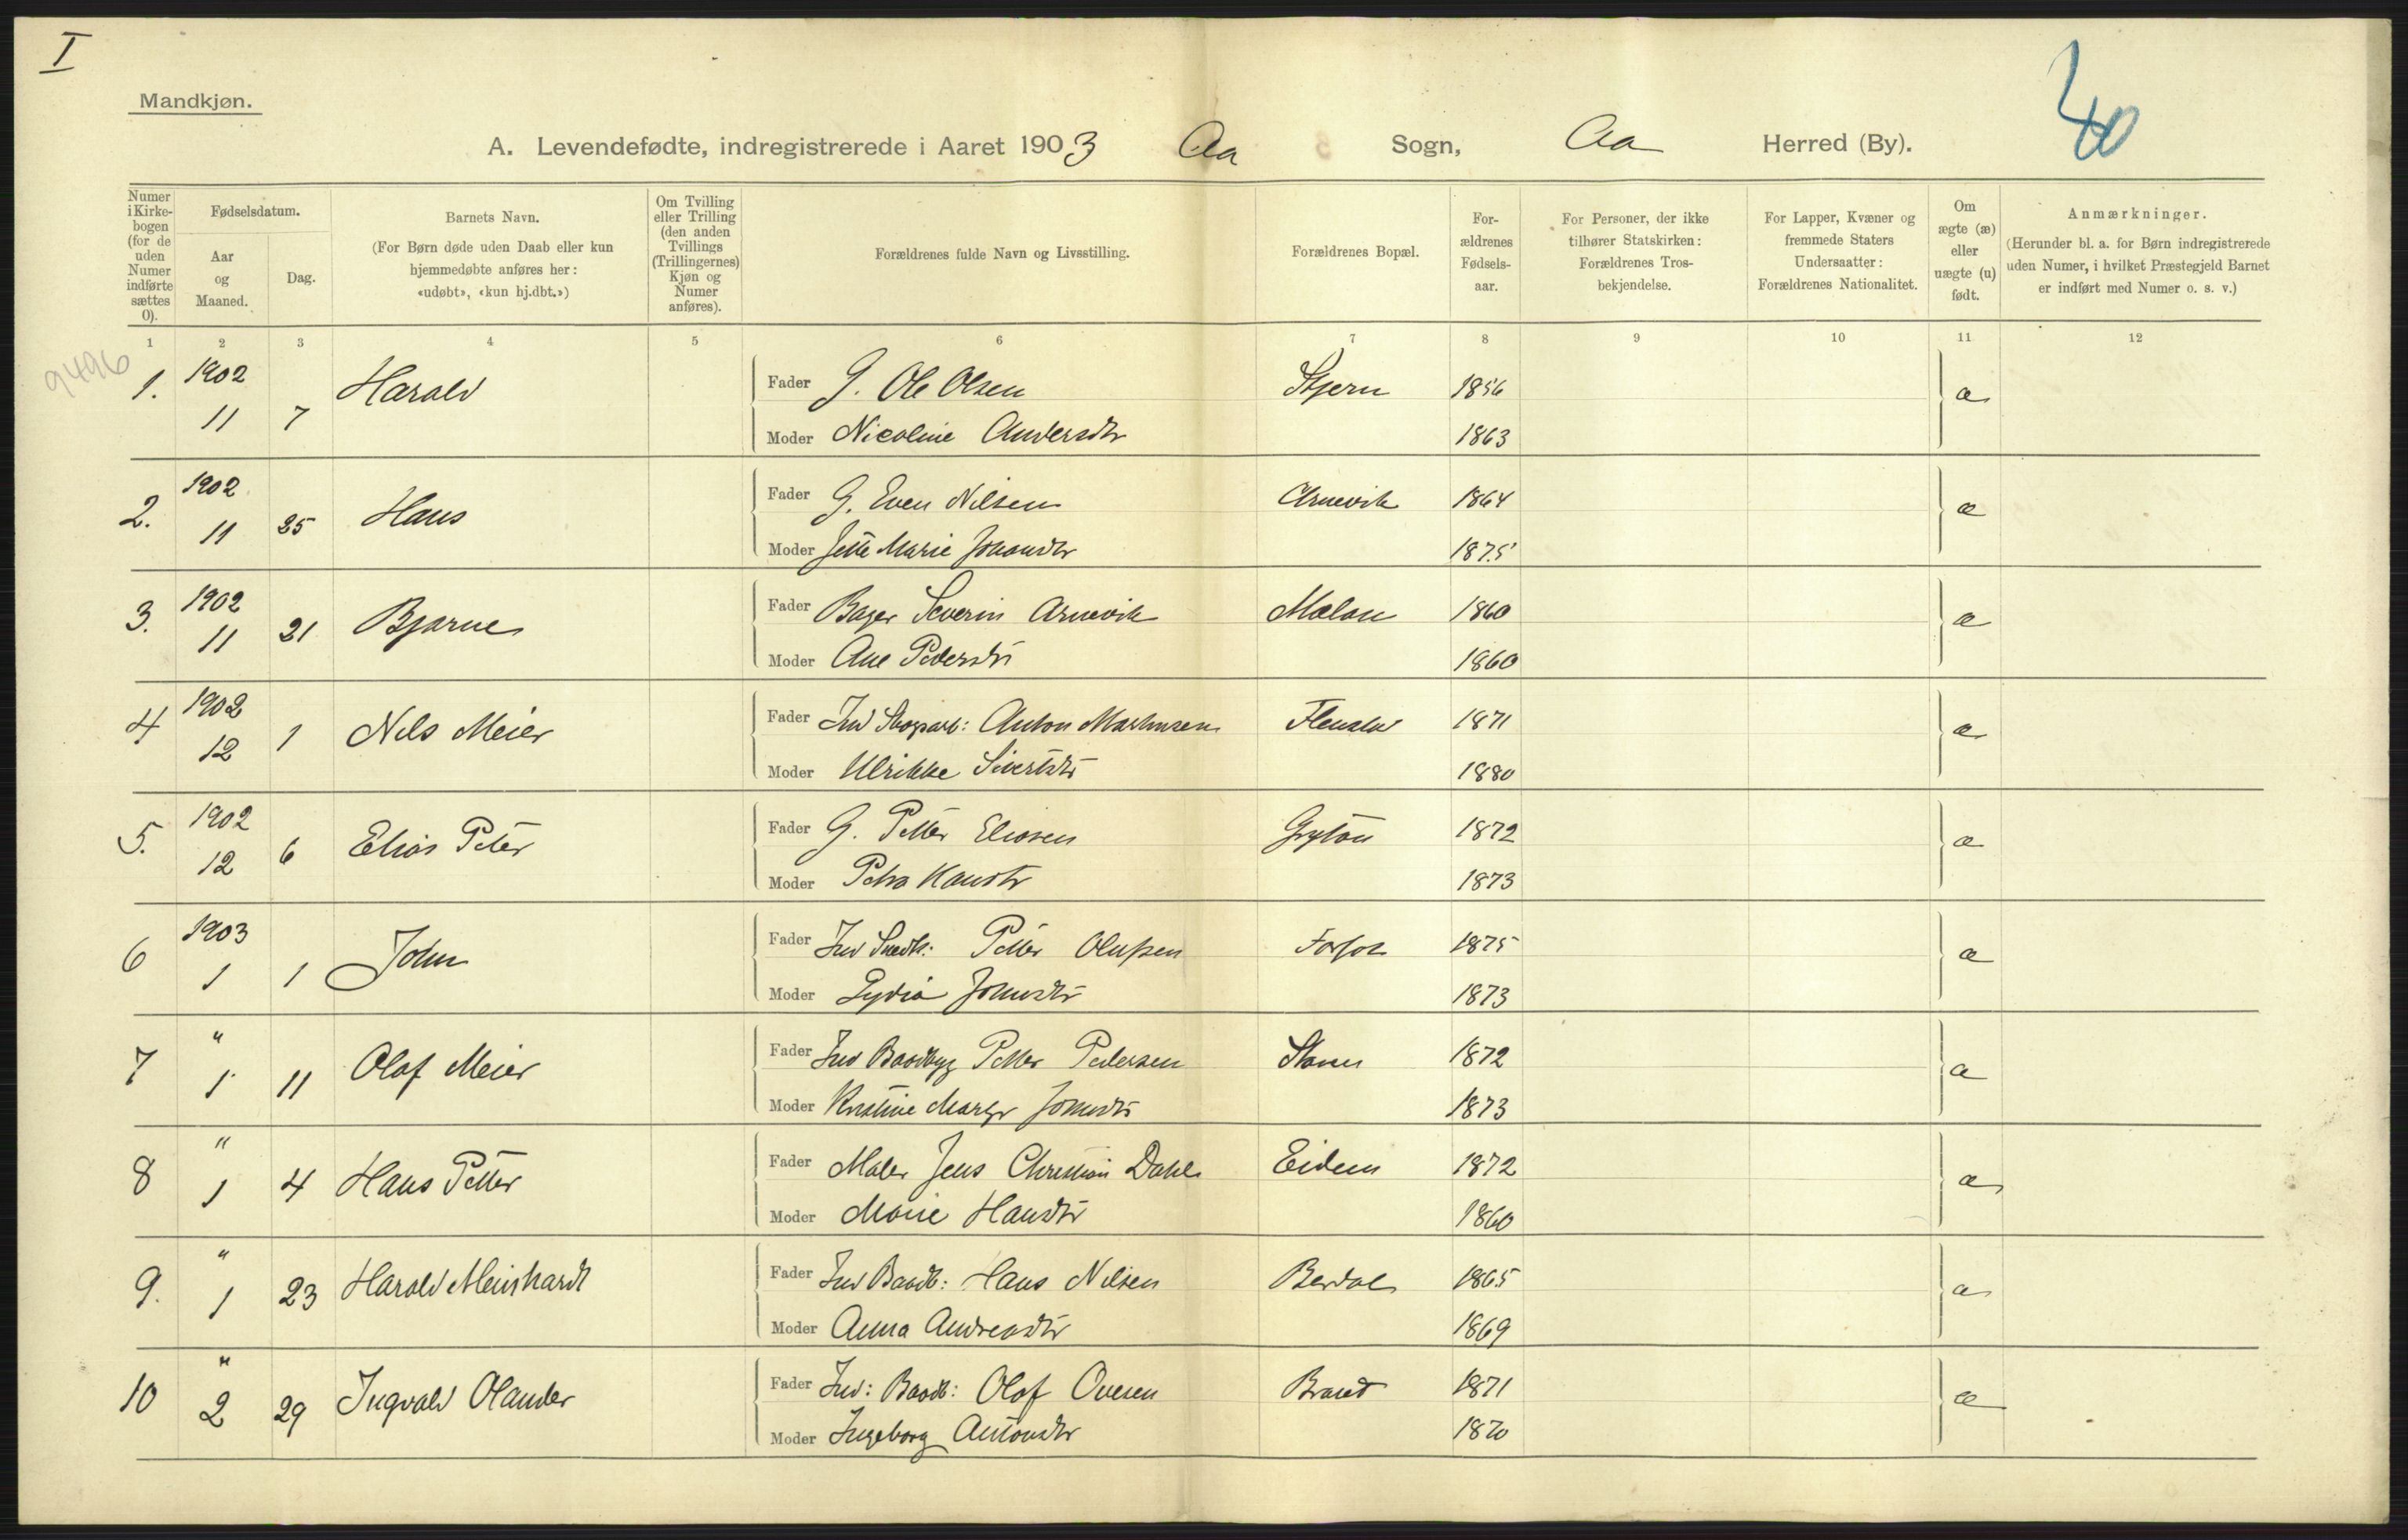 I
40
Mandkjøn.
A. Levendefødte, indregistrerede i Aaret 1903 Aa Sogn, Aa Herred (By).
Numer i Kirkebogen (for de uden Numer indførte sættes 0).
Fødselsdatum.
Aar og Maaned.
Dag.
Barnets Navn.
(For Børn døde uden Daab eller kun
hjemmedøbte anføres her:
«udøbt», «kun hj.dbt.»)
Om Tvilling
eller Trilling
(den anden
Tvillings
(Trillingernes)
Kjøn og
Numer
anføres).
Forældrenes fulde Navn og Livsstilling.
Forældrenes Bopæl.
For-
ældrenes
Fødsels-
aar.
For Personer, der ikke
tilhører Statskirken:
Forældrenes Tros-
bekjendelse.
For Lapper, Kvæner og
fremmede Staters
Undersaatter:
Forældrenes Nationalitet.
Om
ægte (æ)
eller
uægte (u)
født.
Anmærkninger.
(Herunder bl. a. for Børn indregistrerede
uden Numer, i hvilket Præstegjeld Barnet
er indført med Numer o. s. v.)
1 2 3 4 5 6 7 8 9 10 11 12
9496
1. 1902 Harald Fader G. Ole Olsen 1856 æ
11 7 Moder Nicoline Andersdtr 1863
2. 1902 Hans Fader G. Even Nilsen Arnevik 1864 æ
11 25 Moder Jette Marie Johansdtr 1875
3. 1902 Bjarne Fader Bager Severin Arnevik 1860 æ
11 21 Moder Ane Pedersdtr 1860
4 1902 Nils Meier Fader Ind Skogarb: Anton Martinsen 1871 æ
12 1 Moder Ulrikke Sivertsdtr 1880
5. 1902 Elias Peter Fader G. Petter Eliasen 1872 æ
12 6 Moder Petra Hansdtr 1873
6 1903 John Fader Ind Snedk: Petter Olufsen 1875 æ
1 1 Moder Lydia Johnsdtr 1873
7 " Olaf Meier Fader Ind Baadbyg Petter Pedersen 1872 æ
1 11 Moder Kristine Johnsdtr 1873
8 " Hans Petter Fader Maler Jens Christian Dahl Eidem 1872 æ
1 4 Moder Marie Hansdtr 1860
9. " Harald Meinhardt Fader Ind Baadb: Hans Nilsen Berdal 1865 æ
1 23 Moder Anna Andreasdtr 1869
10 " Ingvald Olander Fader Ind: Baadb: Olaf Ovesen 1871 æ
2 29 Moder Ingeborg Antonsdtr 1870